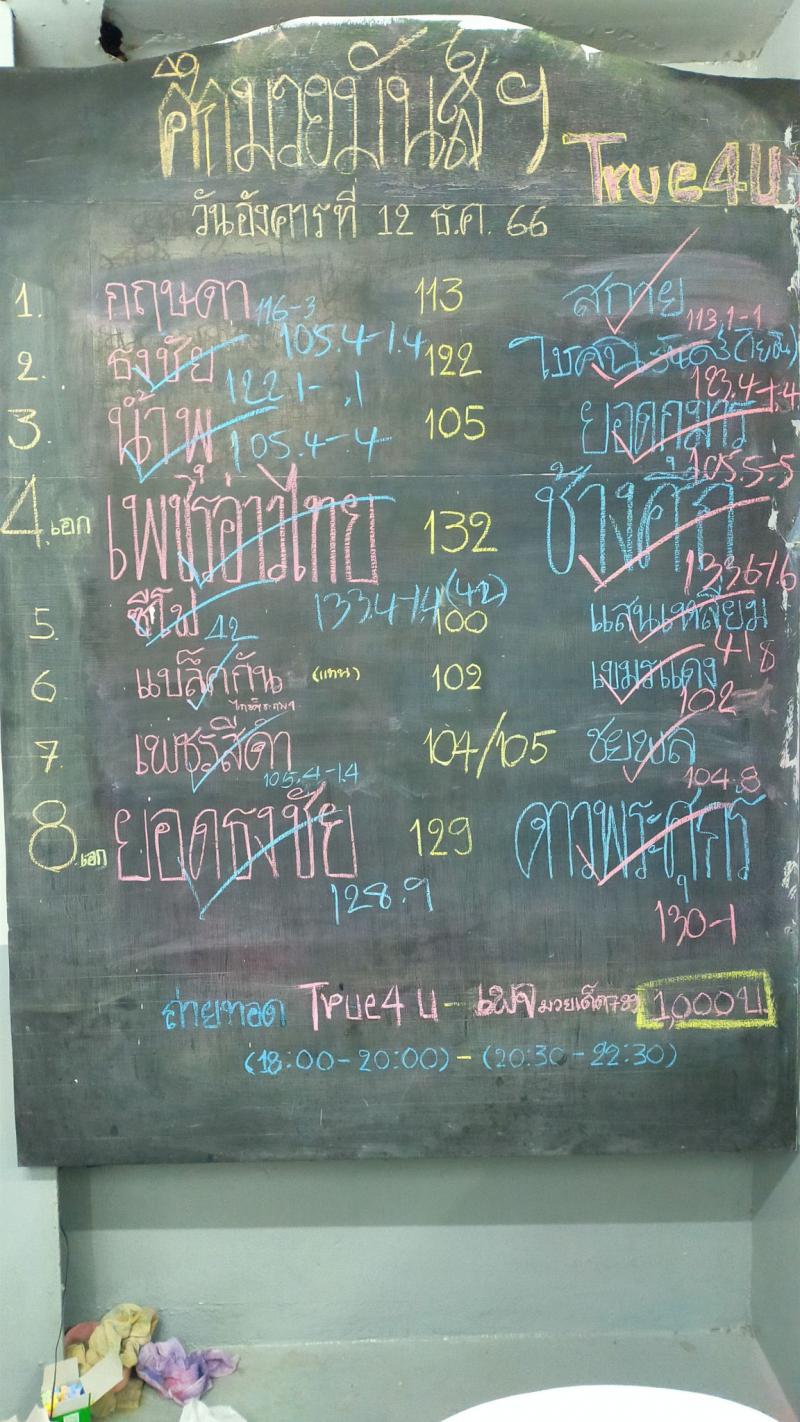 ศึกมวยมันส์ฯ
True4U
วันอังคารที่ 12 ธ.ค. 66
1. กฤษดา 116-3 113 สกาย 113.1-1
105.4-1.4
2. ธงชัย 122 โชคฉันรันดร์
122.1-.1 123.4-1.4
3. น้ำพุ 105 ยอดกุมาร
105.4-.4 105.5-.5
4.เอก เพชรอ่าวไทย 132 ช้างศึก
133.4-1.4(42) 133.6-1.6
5. ซีโม่ 42 100 แสนเหลี่ยม 41.8
6 แบล็คกัน (แทน) 102 เขมรแดง
102-
7. เพชรสีดำ 104/105 ชยพล
105.4-1.4 104.8
8.เอก ยอดธงชัย 129 ดาวพระศุกร์
128.9 130-1
ถ่ายทอด True4U - เพจมวยเด็ด789 1,000 บ.
(18:00-20:00) - (20:30-22:30)